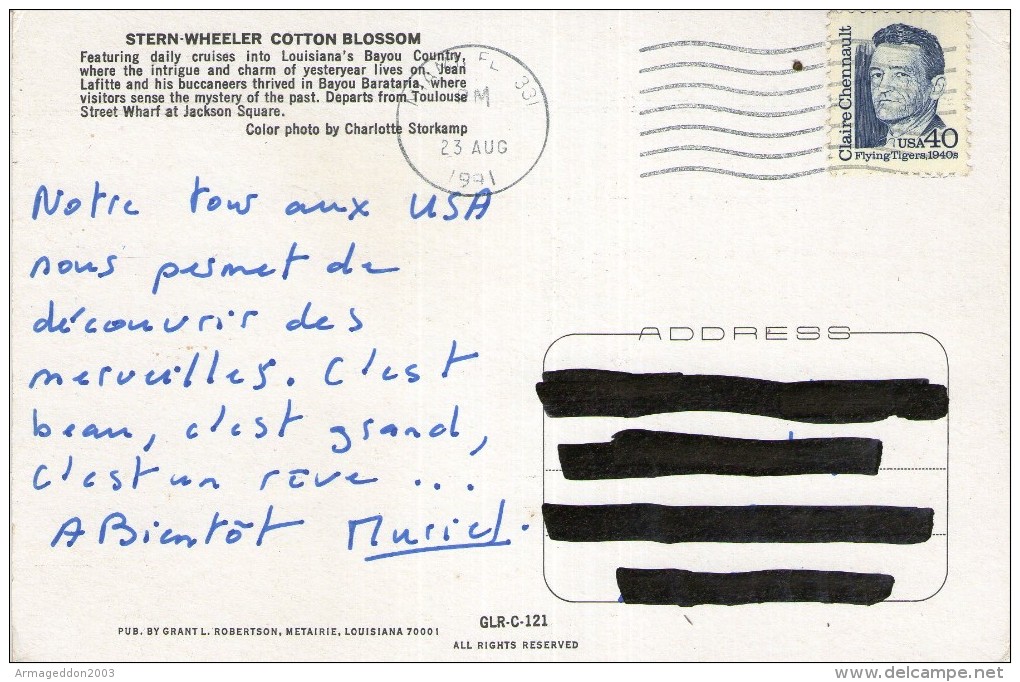 STERN-WHEELER COTTON BLOSSOM
Featuring daily cruises into Louisiana's Bayou Country,
where the intrigue and charm of yesteryear lives on. Jean
Lafitte and his buccaneers thrived in Bayou Barataria, where
visitors sense the mystery of the past. Departs from Toulouse
Street Wharf at Jackson Square.
Color photo by Charlotte Storkamp
FL 331
PM
23 AUG
1991
Claire Chennault
USA 40
Flying Tigers, 1940s
Notre tour aux USA
nous permet de
découvrir des
merveilles. C'est
beau, c'est grand,
c'est un rêve ...
A Bientôt Muriel.
ADDRESS
PUB. BY GRANT L. ROBERTSON, METAIRIE, LOUISIANA 70001
GLR-C-121
ALL RIGHTS RESERVED
Armageddon2003
delcampe.net